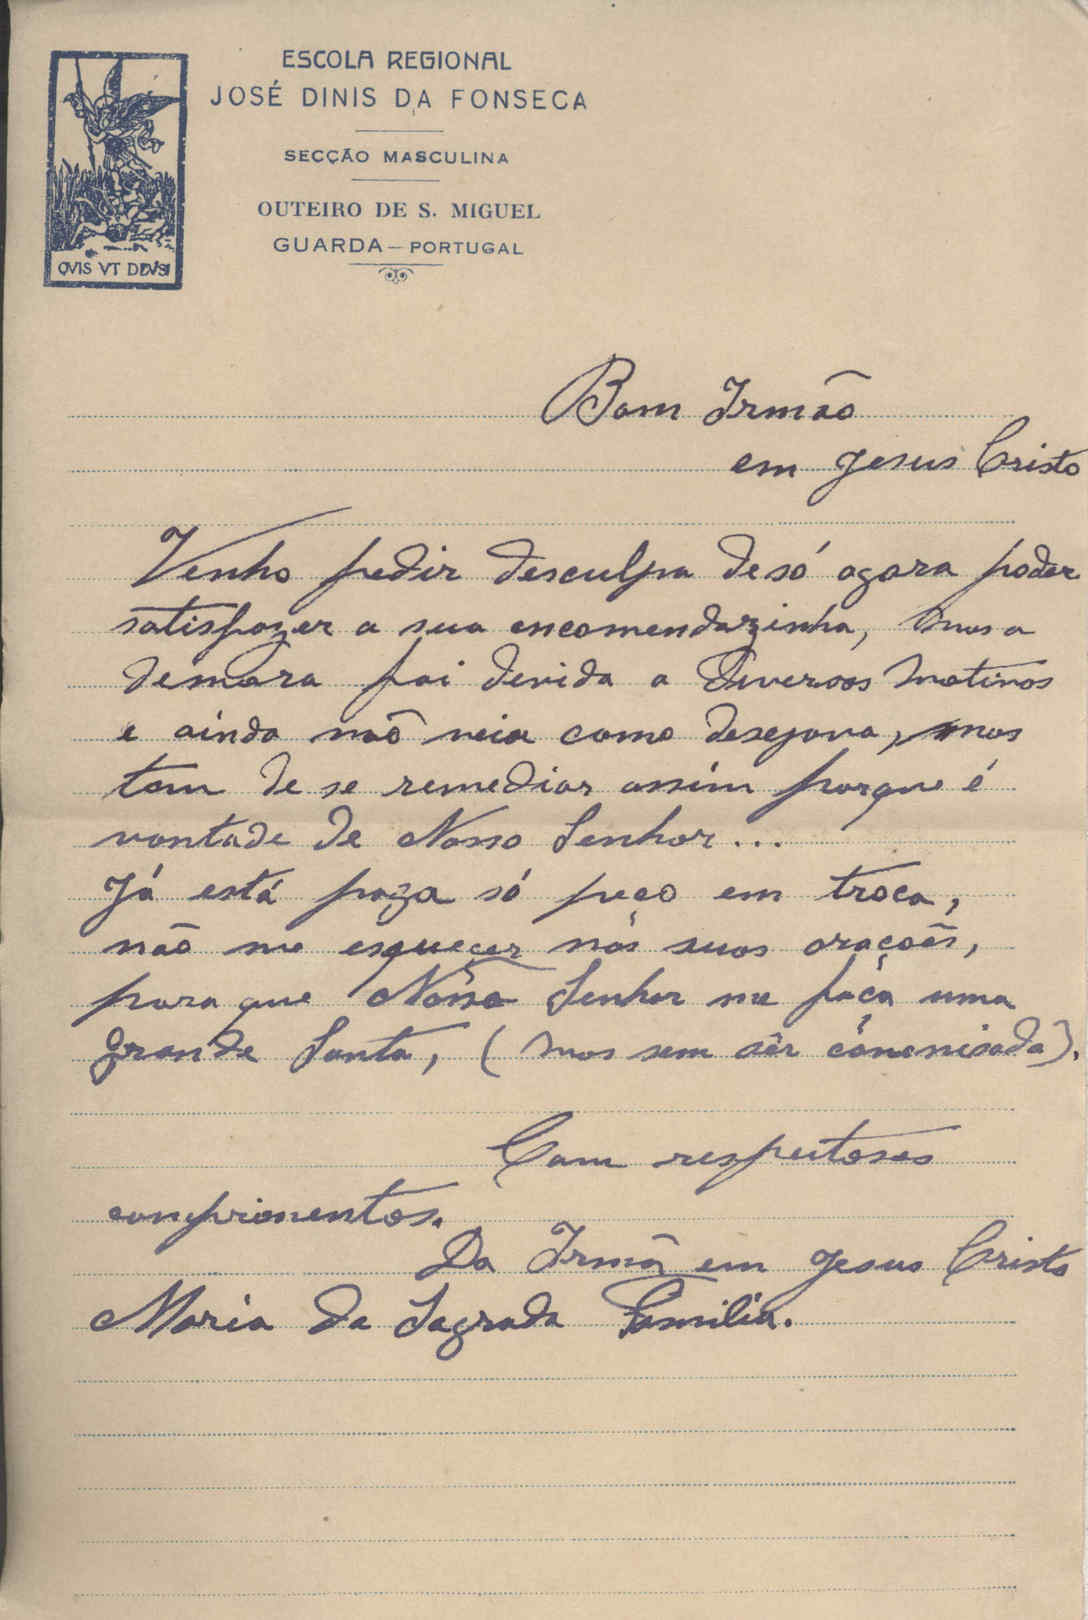 ESCOLA REGIONAL
JOSÉ DINIS DA FONSECA
SECÇÃO MASCULINA
OUTEIRO DE S. MIGUEL
GUARDA – PORTUGAL
QVIS VT DEVS
Bom Irmão
em Jesus Cristo
Venho pedir desculpa de só agora poder
satisfazer a sua encomendazinha, mas a
demora foi devida a diversos motivos
e ainda não veio como desejava, mas
tem de se remediar assim porque é
vontade de Nosso Senhor...
Já está paga só peço em troca,
não me esquecer nas suas oraçoẽs,
para que Nosso Senhor me faça uma
grande Santa, (mas sem sêr cánonisada).
Com respeitosos
comprimentos.
Da Irmã em Jesus Cristo
Maria da Sagrada Familia.